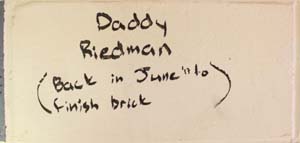 Daddy
Riedman
(Back in June "to
finish brick)